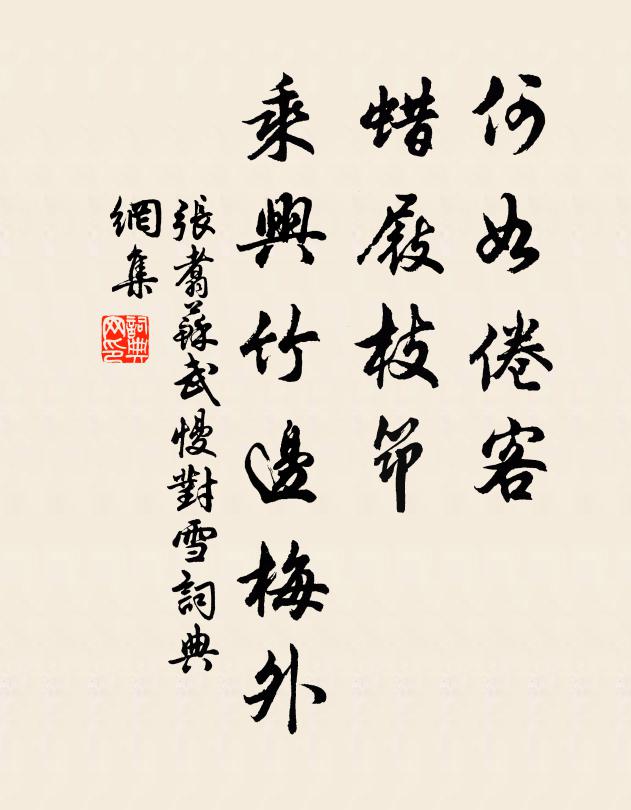 何如倦客
蜡屐枝笻
乘興竹邊梅外
張翥蘇武慢對雪詞典
網集
詞典
网印